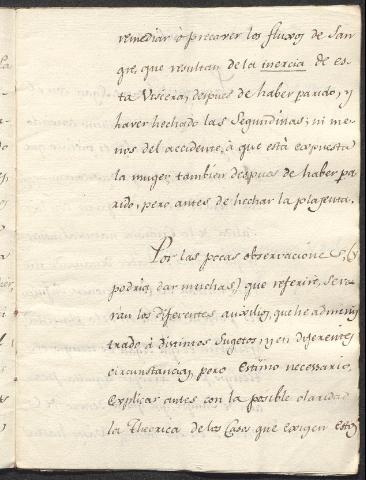 remediar ò precaver los fluxos de San
gre, que resultan de la inercia de es-
ta Viscera, despues de haber parido, y
haver hechado las Segundinas; ni me-
nos del accidente, à que està expuesta
la muger, tambien despues de haber pa
rido, pero antes de hechar la plazenta.
Por las pocas observaciones, (y
podria dar muchas) que referirè, se ve-
ran los diferentes auxilios, que he adminis
trado à distintos Sugetos, y en diferentes
circunstancias, pero estimo necessario,
explicar antes con la posible claridad
la Theorica de los Casos que exigen estos